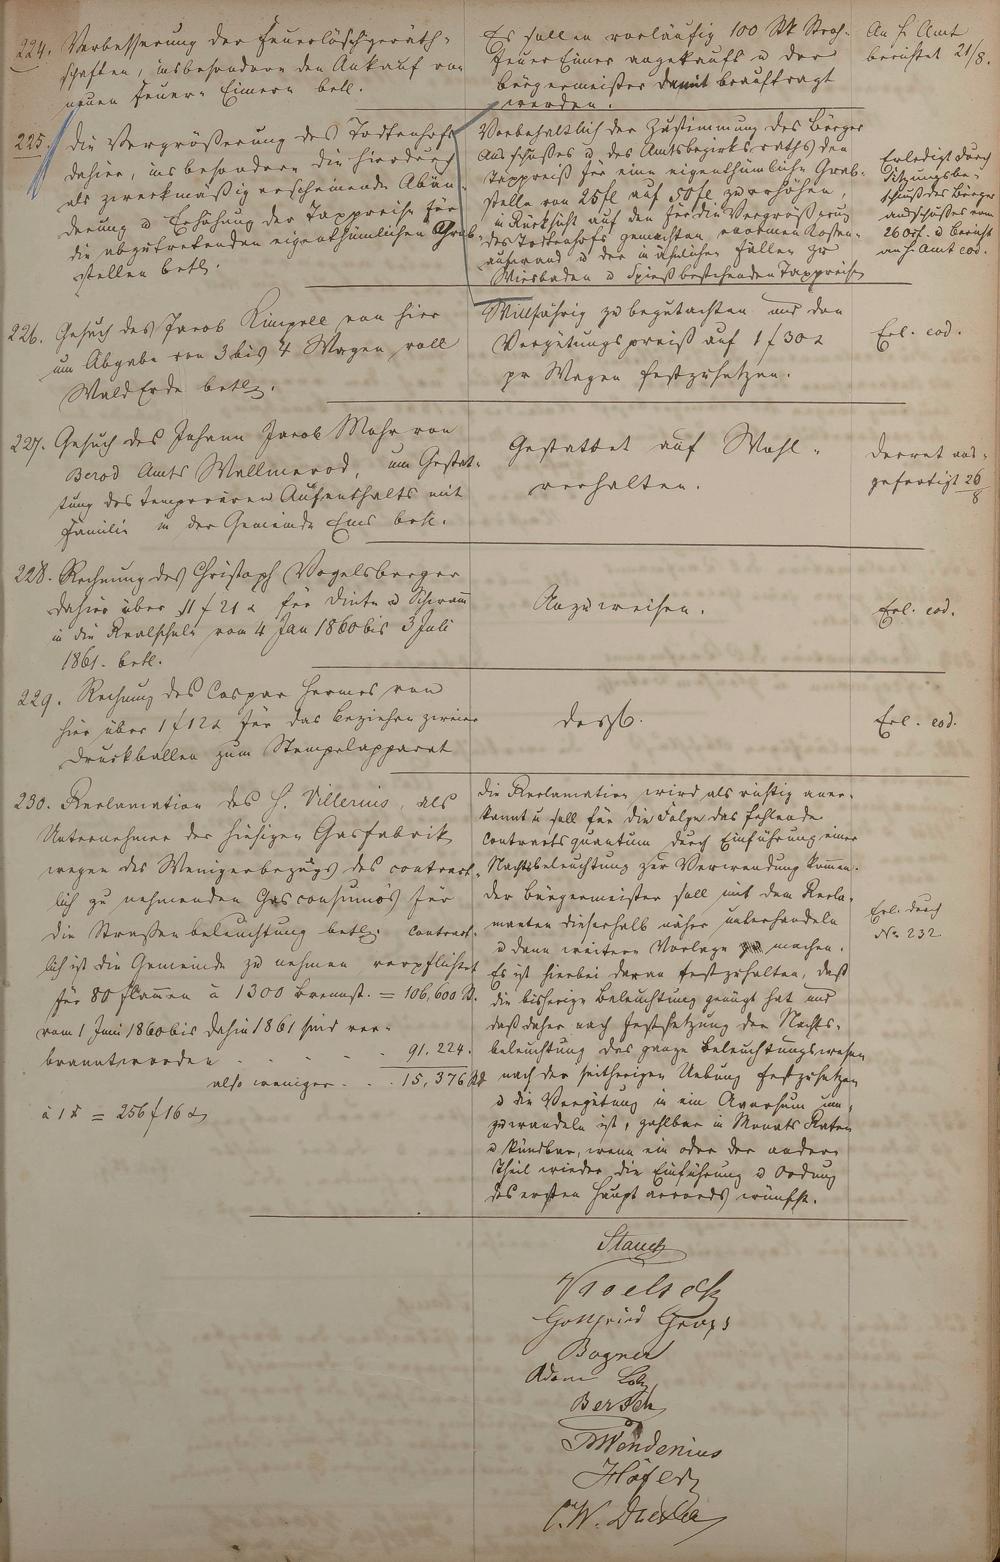 224. Verbesserung der Feuerlöschgeräth-
schaften, insbesondere den Ankauf von
neuen Feuer-Eimern betr.
Es sollen vorläufig 100 Stk Stroh-
Feuer Eimer angekauft u der
Bürgermeister damit beauftragt
werden.
An H. Amt
berichtet 21/8.
225. Die Vergrößerung des Todtenhofs
dahier, insbesondere die hierdurch
als zweckmäßig erscheinende Abän-
derung u Erhöhung der Taxpreise für
die abzutretenden eigenthümlichen Grab-
stellen betr.
Vorbehaltlich der Zustimmung des Bürger
Ausschußes u des Amtsbezirksraths den
Taxpreiß für eine eigenthümliche Grab-
stelle von 25 fl auf 50 fl zu erhöhen,
in Rücksicht auf den für die Vergrößerung
des Todtenhofs gemachten enormen Kosten-
aufwand u der in ähnlichen Fällen zu
Wiesbaden u bestehenden Taxpreise
Erledigt durch
Sitzungsbe-
schluß des Bürger
ausschußes vom
26 u Bericht
an H. Amt eod.
226. Gesuch des Jacob Kimpell von hier
um Abgabe von 3 bis 4 Wagen voll
Wald Erde betr.
Willfährig zu begutachten und den
Vergütungspreiß auf 1 f 30 x
pr Wagen festzusetzen.
Erl. eod.
227. Gesuch des Johann Jacob Mohr von
Berod Amts Wallmerod, um Gestat-
tung des temporären Aufenthalts mit
Familie in der Gemeinde Ems betr.
Gestattet auf Wohl-
verhalten.
Decret aus-
gefertigt 26/8
228. Rechnung des Christoph Vogelsberger
dahier über 11 f 21 x für Dinte u Schwamm
in die Realschule vom 4 Jan 1860 bis 3 Juli
1861. betr.
Anzuweisen.
Erl. eod.
229. Rechnung des Caspar Hermes von
hier über 1 f 12 x für das Beziehen zweier
Druckballen zum Stempelapparat
desgl.
Erl. eod.
230. Reclamation des H. Villerius, als
Unternehmer der hiesigen Gasfabrik
wegen des Wenigerbezugs des contract-
lich zu nehmenden Gasconsumos für
die Straßenbeleuchtung betr. Contract-
lich ist die Gemeinde zu nehmen verpflichtet
für 80 Flammen à 1300 Brennst. = 106,600 B.
vom 1 Juni 1860 bis dahin 1861 sind ver-
brannt worden . . . . 91,224.
also weniger . . . 15,376
à 1 x = 256 f 16 x
Die Reclamation wird als richtig aner-
kannt u soll für die Folge das fehlende
Contractsquantum durch Einführung einer
Nachtsbeleuchtung zur Verwendung kommen.
Der Bürgermeister soll mit dem Recla-
manten dieserhalb näher unterhandeln
u dann weitere Vorlage machen.
Es ist hierbei daran festzuhalten, daß
die bisherige Beleuchtung genügt hat und
daß daher nach Festsetzung der Nachts-
beleuchtung das ganze Beleuchtungswesen
nach der seitherigen Uebung festzusetzen
u die Vergütung in ein Aversum um-
zuwandeln ist, zahlbar in Monats Raten
u kündbar, wenn ein oder der andere
Theil wieder die Einführung u Ordnung
des ersten Haupt accords wünscht.
Erl. durch
No 232
Gottfried
Bogner
Adam
Bersch
Wendenius
Höfer
C. W.